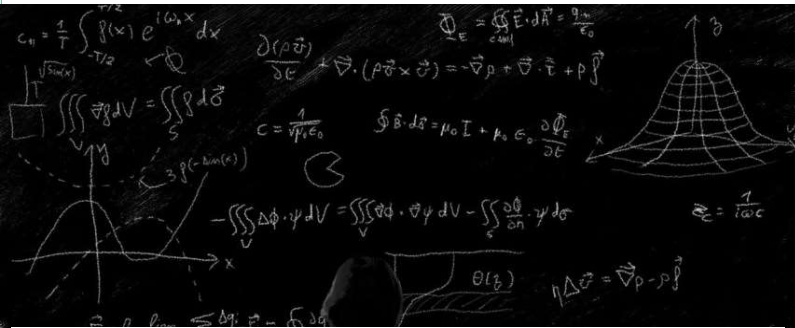 c_n = 1/T ∫_{-T/2}^{T/2} f(x) e^{iω_n x} dx
Φ_E = ∯ E⃗·dA⃗ = q_in/ε_0
z
∂(ρv⃗)/∂t + ∇⃗·(ρv⃗×v⃗) = -∇⃗p + ∇⃗·τ⃗ + ρf⃗
√sin(x)
∭_V ∇⃗f dV = ∬_S f dσ⃗
c = 1/√(μ_0 ε_0)
∮B⃗·ds⃗ = μ_0 I + μ_0 ε_0 ∂Φ_E/∂t
x
y
3f(-sin(x))
-∭_V Δϕ·ψ dV = ∭_V ∇⃗ϕ·∇⃗ψ dV - ∬_S ∂ϕ/∂n·ψ dσ
z_c = 1/iωc
x
θ(z)
ηΔv⃗ = ∇⃗p - ρf⃗